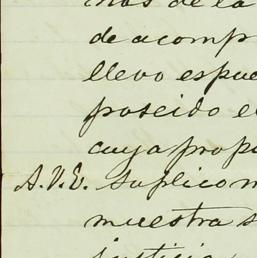 mos de la
de acomp
llevo espue
poseido e
cuya prop
A. V. E. suplico m
muestra s
justicia